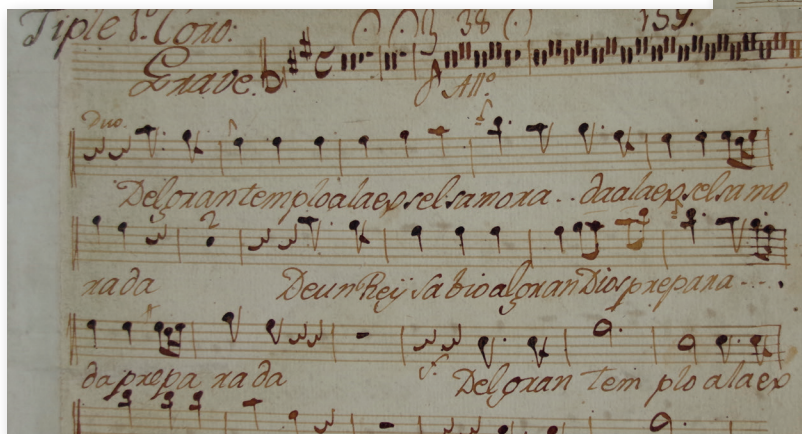 Tiple 1.º Coro:
Grave. 3 38 159.
All.º
Duo.
Del gran templo a la exselsa mora.. da a la exselsa mo
2
rada De un Rey sabio al gran Dios prepara ....
da prepa rada Del gran tem plo a la ex